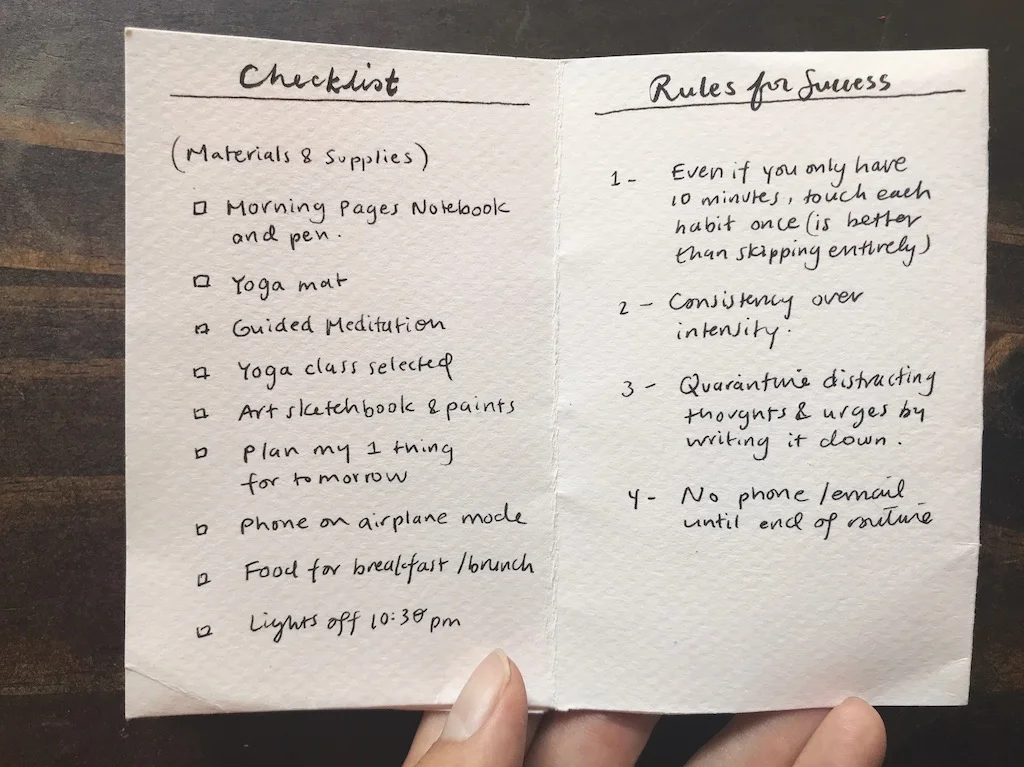 Checklist
(Materials & Supplies)
Morning Pages Notebook
and pen.
Yoga mat
Guided Meditation
Yoga class selected
Art sketchbook & paints
Plan my 1 thing
for tomorrow
Phone on airplane mode
Food for breakfast/brunch
Lights off 10:30 pm
Rules for Success
1- Even if you only have
10 minutes, touch each
habit once (is better
than skipping entirely)
2- Consistency over
intensity.
3- Quarantine distracting
thoughts & urges by
writing it down.
4- No phone/email
until end of routine